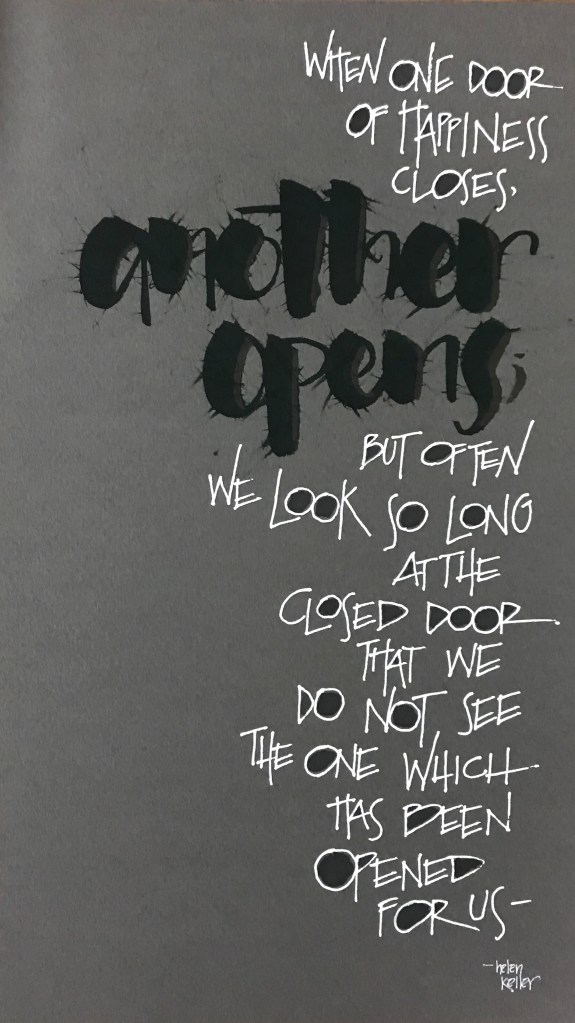 WHEN ONE DOOR
OF HAPPINESS
CLOSES,
another
opens;
BUT OFTEN
WE LOOK SO LONG
AT THE
CLOSED DOOR
THAT WE
DO NOT SEE
THE ONE WHICH
HAS BEEN
OPENED
FOR US—
—helen
keller